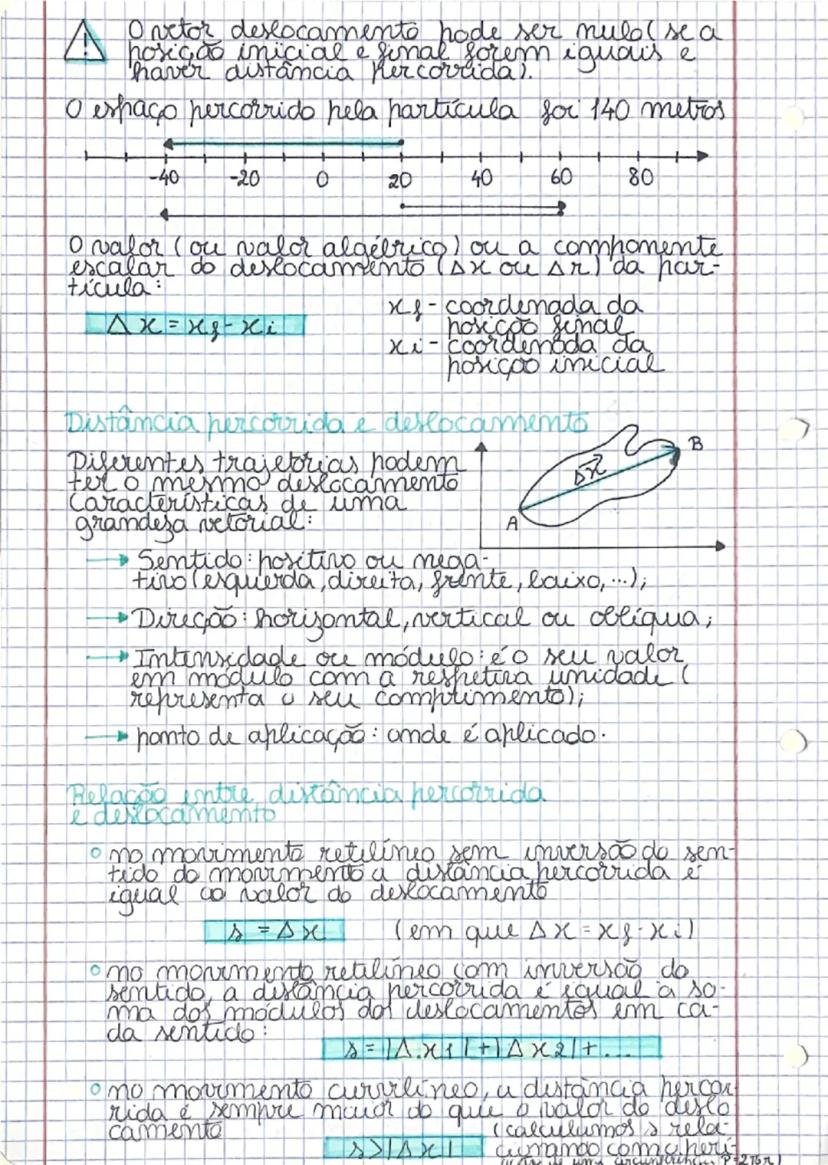 O vetor deslocamento pode ser nulo (se a
posição inicial e final forem iguais e
haver distância percorrida).
O espaço percorrido pela partícula foi 140 metros
-40 -20 0 20 40 60 80
O valor (ou valor algébrico) ou a componente
escalar do deslocamento (Δx ou Δr) da par-
tícula:
Δx = xf - xi
xf - coordenada da
posição final
xi - coordenada da
posição inicial
Distância percorrida e deslocamento
Diferentes trajetórias podem
ter o mesmo deslocamento
Características de uma
grandeza vetorial:
A
Δr
B
→ Sentido: positivo ou nega-
tivo (esquerda, direita, frente, baixo, ...);
→ Direção: horizontal, vertical ou oblíqua;
→ Intensidade ou módulo: é o seu valor
em módulo com a respetiva unidade (
representa o seu comprimento);
→ ponto de aplicação: onde é aplicado.
Relação entre distância percorrida
e deslocamento
° no movimento retilíneo sem inversão do sen-
tido do movimento a distância percorrida é
igual ao valor do deslocamento
s = Δx (em que Δx = xf - xi)
° no movimento retilíneo com inversão do
sentido, a distância percorrida é igual à so-
ma dos módulos dos deslocamentos em ca-
da sentido:
s = |Δx1| + |Δx2| + ...
° no movimento curvilíneo, a distância percor
rida é sempre maior do que o valor do deslo
camento (calculamos s rela-
s > |Δx| cionando com o perí-
de uma circunferência P=2πr)